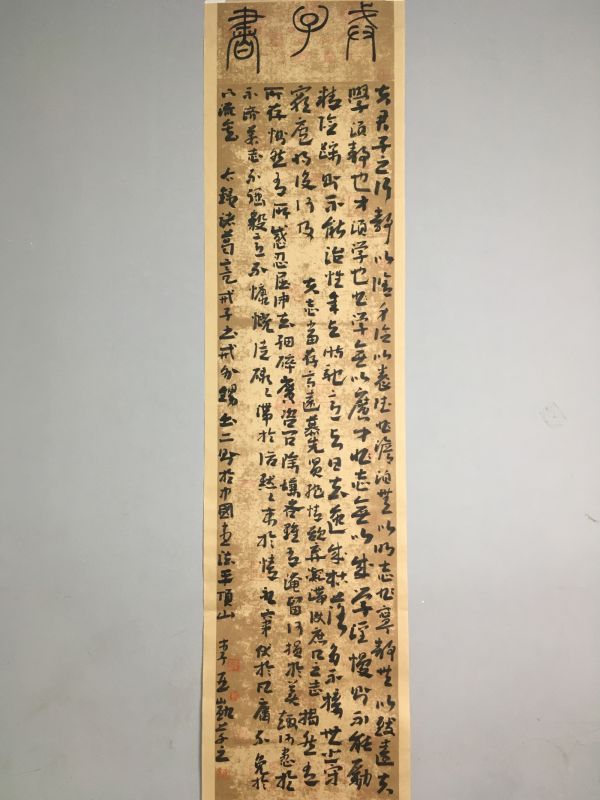 戒子書
夫君子之行靜以修身儉以養德非澹泊無以明志非寧靜無以致遠夫
學須靜也才須学也非学無以廣才非志無以成学淫慢則不能勵
精險躁則不能治性年与時馳意与日去遂成枯落多不接世悲守
窮廬將復何及 夫志當存高遠慕先賢絕情欲棄凝滯使庶几之志揭然有
所存惻然有所感忍屈伸去細碎廣咨問除嫌吝雖有淹留何損於美趣何患於
不濟若志不強毅意不慷慨徒碌々滯於俗默々束於情永竄伏於凡庸不免於
下流矣 右録諸葛亮戒子書戒外甥書二則於中國書法平頂山 李亞